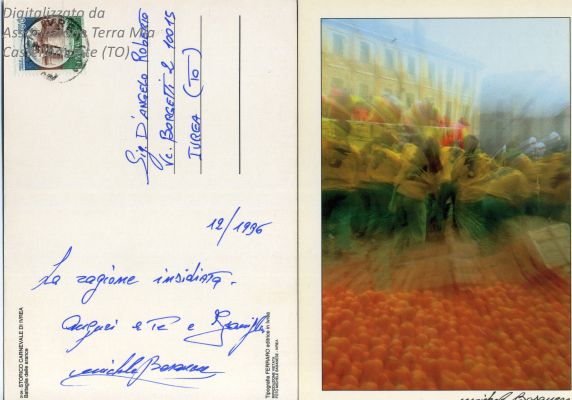 Digitalizzato da
Associazione Terra Mia
Castellamonte (TO)
Sig. D'ANGELO ROBERTO
Vc. BORGETTI 2 10015
IVREA (TO)
12/1996
La ragione insidiata.
Auguri a Te e famiglia
Michele Basanese
STORICO CARNEVALE DI IVREA
Battaglia delle arance
Tipografia FERRARO editrice in Ivrea